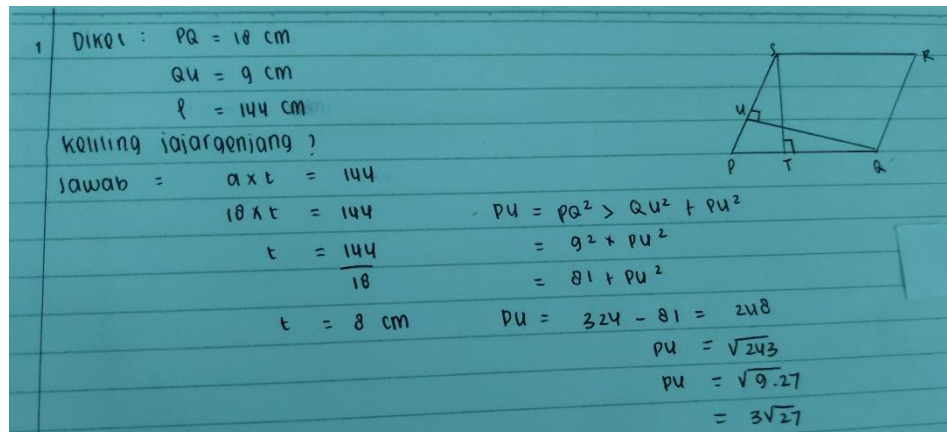 1 Diket : PQ = 18 cm
QU = 9 cm
l = 144 cm
Keliling jajargenjang ?
Jawab = a x t = 144
18 x t = 144
t = 144
18
t = 8 cm
PU = PQ² > QU² + PU²
= 9² + PU²
= 81 + PU²
PU = 324 - 81 = 248
PU = √243
PU = √9.27
= 3√27
S R
U
P T Q